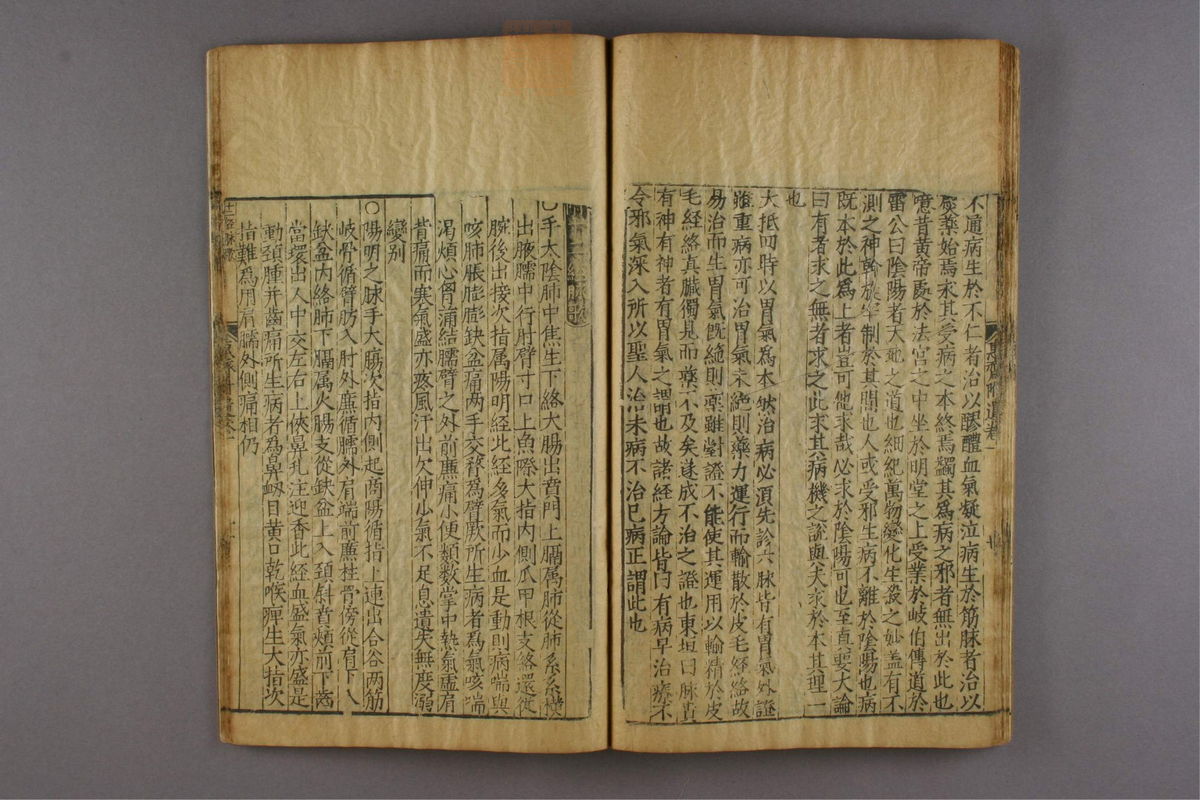 不通病生於不仁者治以醪醴血氣凝泣病生於筋脉者治以
藥始焉求其受病之本終焉蠲其為病之邪者無出於此也
噫昔黃帝處於法宮之中坐於明堂之上受業於岐伯傳道於
雷公曰陰陽者天地之道也細紀萬物變化生殺之妙盖有不
測之神斡旋宰制於其間也人或受邪生病不離於陰陽也病
既本於此為上者豈可他求哉必求於陰陽可也至真要大論
曰有者求之無者求之此求其病機之說與夫求於本其理一
也
大抵四時以胃氣為本然治病必須先診六脉皆有胃氣外證
雖重病亦可治胃氣未絕則藥力運行而輸散於皮毛經絡故
易治而生胃氣既絕則藥雖對證不能使其運用以輸精於皮
毛經絡真臟獨見而藥不及矣遂成不治之證也東垣曰脉貴
有神有神者有胃氣之謂也故諸經方論皆曰有病早治療不
令邪氣深入所以聖人治未病不治已病正謂此也
十二經脉
〇手太陰肺中焦生下絡大腸出賁門上膈屬肺從肺系系橫
出腋臑中行肘臂寸口上魚際大指內側爪甲根支絡還從
腕後出接次指屬陽明經此經多氣而少血是動則病喘與
咳肺脹膨膨缺盆痛兩手交瞀為臂厥所生病者為氣咳喘
渴煩心胷滿結臑臂之外前廉痛小便類數掌中熱氣虛肩
背痛而寒氣盛亦疼風汗出欠伸少氣不足息遺失無度溺
變别
〇陽明之脉手大腸次指內側起商陽循指上連出合谷兩筋
岐骨循臂肪入肘外廉循臑外肩端前廉柱骨傍從肩下入
缺盆內絡肺下膈屬火腸支從缺盆上入頚斜貴頰前下齒
當環出人中交左右上俠鼻孔注迎香此經血盛氣亦盛是
動頚腫并齒痛所生病者為鼻衂目黃口乾喉痺生大指次
指難為用肩臑外側痛相仍